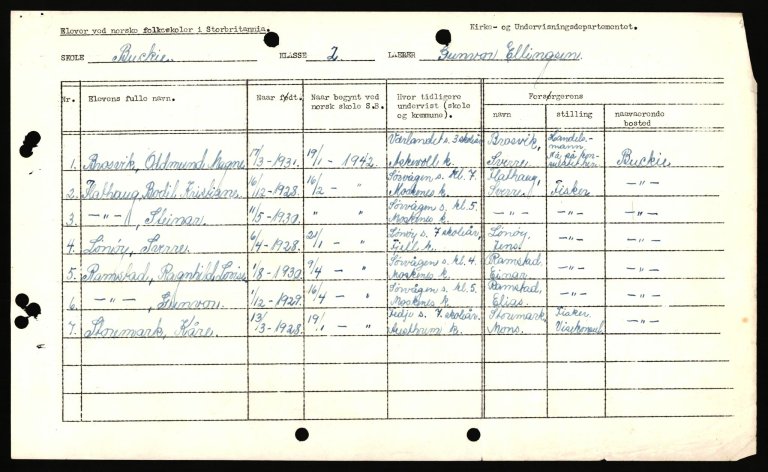 Elever ved norske folkeskoler i Storbritannia.
Kirke- og Undervisningsdepartementet.
SKOLE Buckie. KLASSE 2 LÆRER Gunvor Ellingsen.
Nr. Elevens fulle navn. Naar født. Naar begynt ved norsk skole S.B. Hvor tidligere undervist (skole og kommune). Forsørgerens navn stilling nåværende bosted
1. Brosvik, Oldmund Magne 17/3-1931. 19/1 - 1942. Værlandet s. 3 skoleår, Askvoll h. Brosvik, Sverre. Handels-mann. Buckie
2. Flathaug, Bodil Kristians. 16/12-1928. 16/2 - " Sørvågen s. kl. 7. Moskenes h. Flathaug, Sverre. Fisker —"—
3. —"—, Steinar. 11/5-1930. " " Sørvågen s. kl. 5. Moskenes h. —"— —"— —"—
4. Lønøy, Sverre. 6/4-1928. 21/1 - " Lønøy s. 7 skoleår, Fjell h. Lønøy, Jens. —"— —"—
5. Ramstad, Ragnhild Lovise 1/8-1930. 9/4 - " Sørvågen s. kl. 4. Moskenes h. Ramstad, Einar. —"— —"—
6. —"—, Gunvor. 1/12-1929. 16/4 - " Sørvågen s. kl. 5. Moskenes h. Ramstad, Elias. —"— —"—
7. Stormark, Kåre. 13/3-1928. 19/1 - " s. 7 skoleår. h. Stormark, Mons. Fisker. Visekonsul. —"—